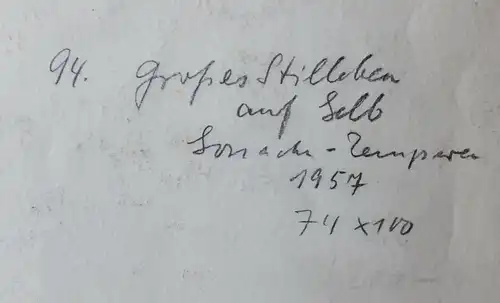 94. Großes Stilleben
auf Gelb
Tempera
1957
74 x 100